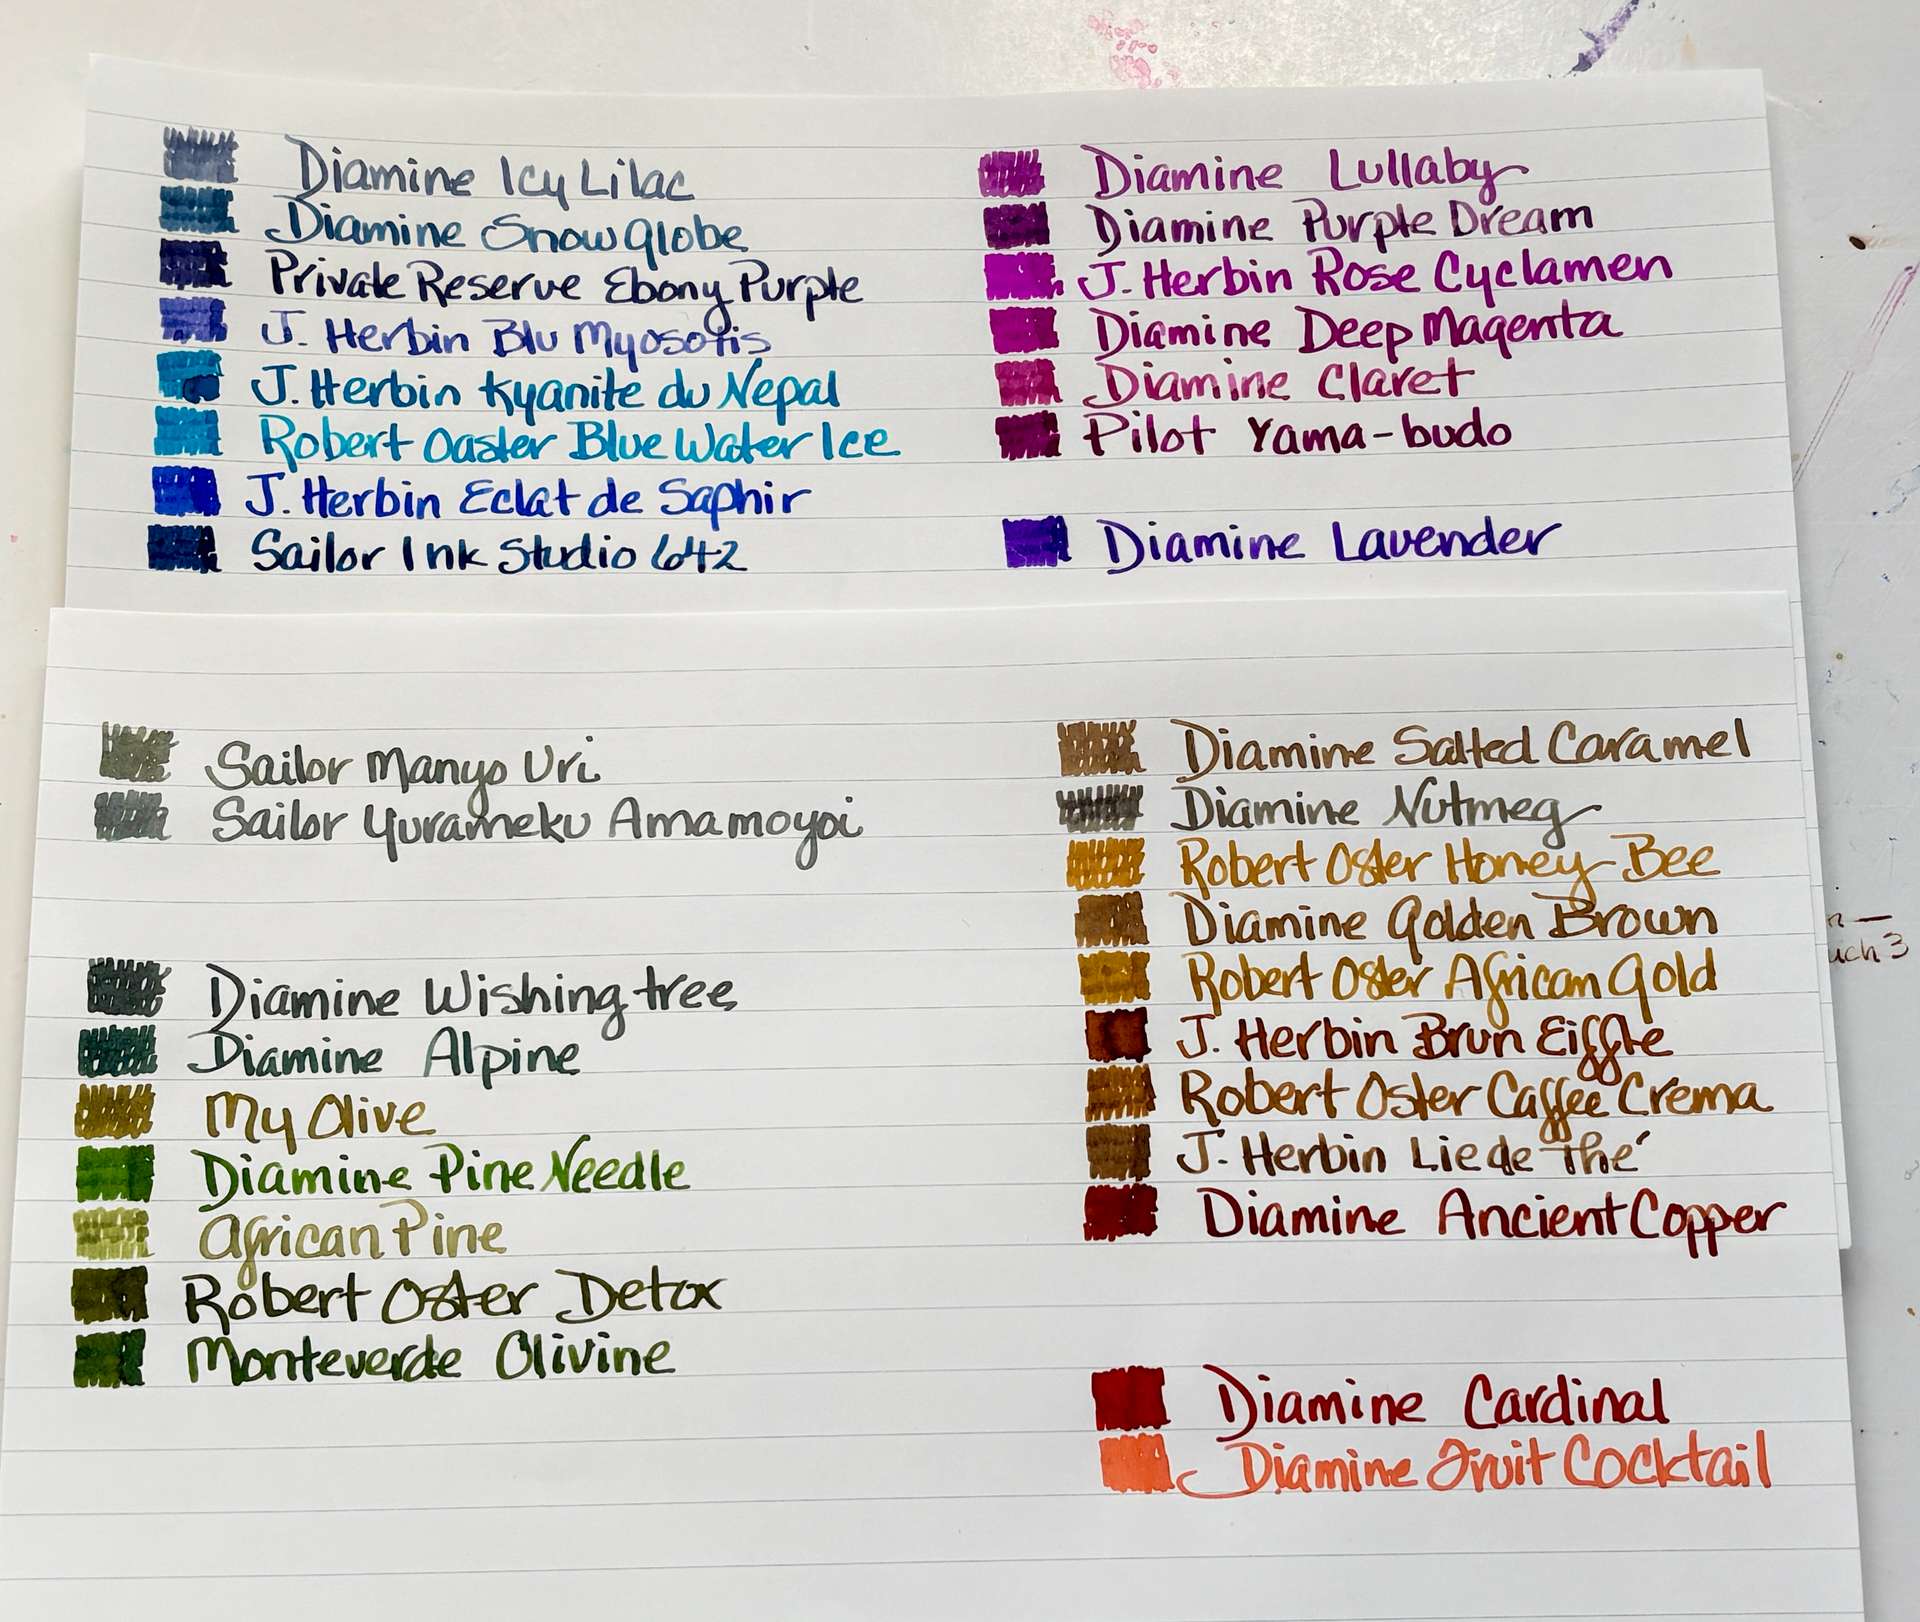 Diamine Icy Lilac
Diamine Snowglobe
Private Reserve Ebony Purple
J. Herbin Blu Myosotis
J. Herbin Kyanite du Nepal
Robert Oaster Blue Water Ice
J. Herbin Eclat de Saphir
Sailor Ink Studio 642
Diamine Lullaby
Diamine Purple Dream
J. Herbin Rose Cyclamen
Diamine Deep Magenta
Diamine Claret
Pilot Yama-budo
Diamine Lavender
Sailor Manyo Uri
Sailor Yurameku Amamoyoi
Diamine Wishing tree
Diamine Alpine
My Olive
Diamine Pine Needle
African Pine
Robert Oster Detox
Monteverde Olivine
Diamine Salted Caramel
Diamine Nutmeg
Robert Oster Honey Bee
Diamine Golden Brown
Robert Oster African Gold
J. Herbin Brun Eiffle
Robert Oster Caffee Crema
J. Herbin Lie de Thé
Diamine Ancient Copper
Diamine Cardinal
Diamine Fruit Cocktail